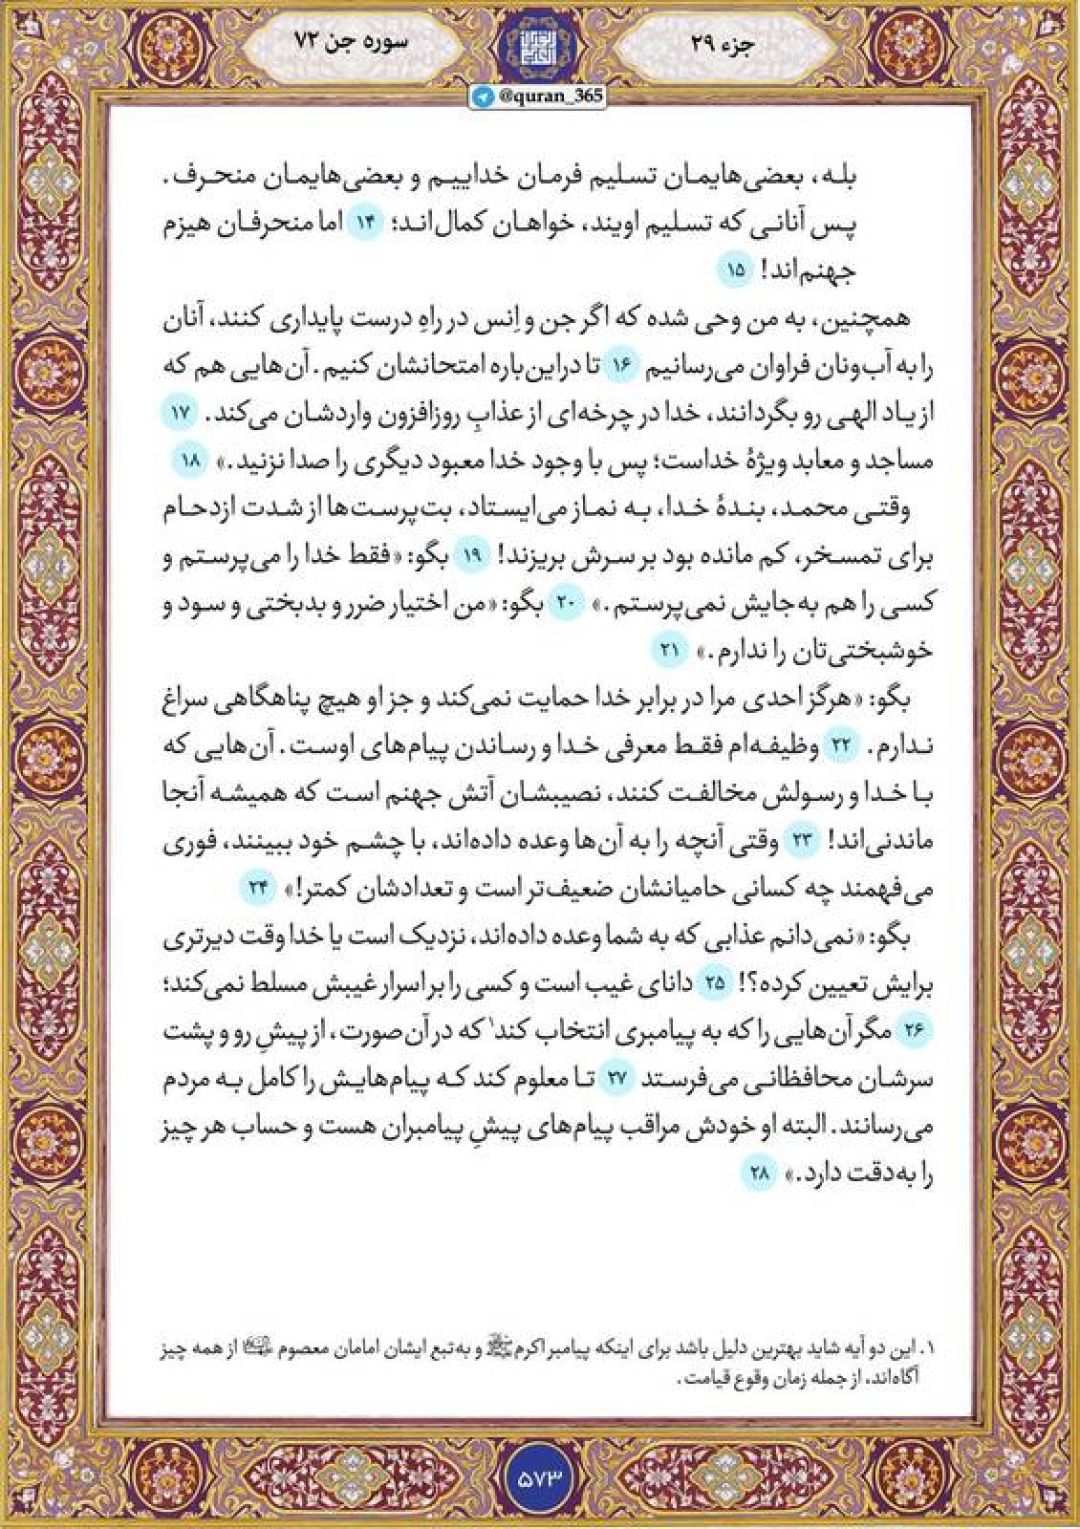 جزء ۲۹
سوره جن ۷۲
@quran_365
بله، بعضی‌هایمان تسلیم فرمان خداییم و بعضی‌هایمان منحرف.
پس آنانی که تسلیم اویند، خواهان کمال‌اند؛ ۱۴ اما منحرفان هیزم
جهنم‌اند! ۱۵
همچنین، به من وحی شده که اگر جن و اِنس در راهِ درست پایداری کنند، آنان
را به آب‌ونان فراوان می‌رسانیم ۱۶ تا دراین‌باره امتحانشان کنیم. آن‌هایی هم که
از یاد الهی رو بگردانند، خدا در چرخه‌ای از عذابِ روزافزون واردشان می‌کند. ۱۷
مساجد و معابد ویژهٔ خداست؛ پس با وجود خدا معبود دیگری را صدا نزنید.» ۱۸
وقتی محمد، بندهٔ خدا، به نماز می‌ایستاد، بت‌پرست‌ها از شدت ازدحام
برای تمسخر، کم مانده بود بر سرش بریزند! ۱۹ بگو: «فقط خدا را می‌پرستم و
کسی را هم به‌جایش نمی‌پرستم.» ۲۰ بگو: «من اختیار ضرر و بدبختی و سود و
خوشبختی‌تان را ندارم.» ۲۱
بگو: «هرگز احدی مرا در برابر خدا حمایت نمی‌کند و جز او هیچ پناهگاهی سراغ
ندارم. ۲۲ وظیفه‌ام فقط معرفی خدا و رساندن پیام‌های اوست. آن‌هایی که
با خدا و رسولش مخالفت کنند، نصیبشان آتش جهنم است که همیشه آنجا
ماندنی‌اند! ۲۳ وقتی آنچه را به آن‌ها وعده داده‌اند، با چشم خود ببینند، فوری
می‌فهمند چه کسانی حامیانشان ضعیف‌تر است و تعدادشان کمتر!» ۲۴
بگو: «نمی‌دانم عذابی که به شما وعده داده‌اند، نزدیک است یا خدا وقت دیرتری
برایش تعیین کرده؟! ۲۵ دانای غیب است و کسی را بر اسرار غیبش مسلط نمی‌کند؛
۲۶ مگر آن‌هایی را که به پیامبری انتخاب کند۱ که در آن‌صورت، از پیشِ رو و پشت
سرشان محافظانی می‌فرستد ۲۷ تا معلوم کند که پیام‌هایش را کامل به مردم
می‌رسانند. البته او خودش مراقب پیام‌های پیشِ پیامبران هست و حساب هر چیز
را به‌دقت دارد.» ۲۸
۱. این دو آیه شاید بهترین دلیل باشد برای اینکه پیامبر اکرم و به‌تبع ایشان امامان معصوم از همه چیز
آگاه‌اند، از جمله زمان وقوع قیامت.
۵۷۳